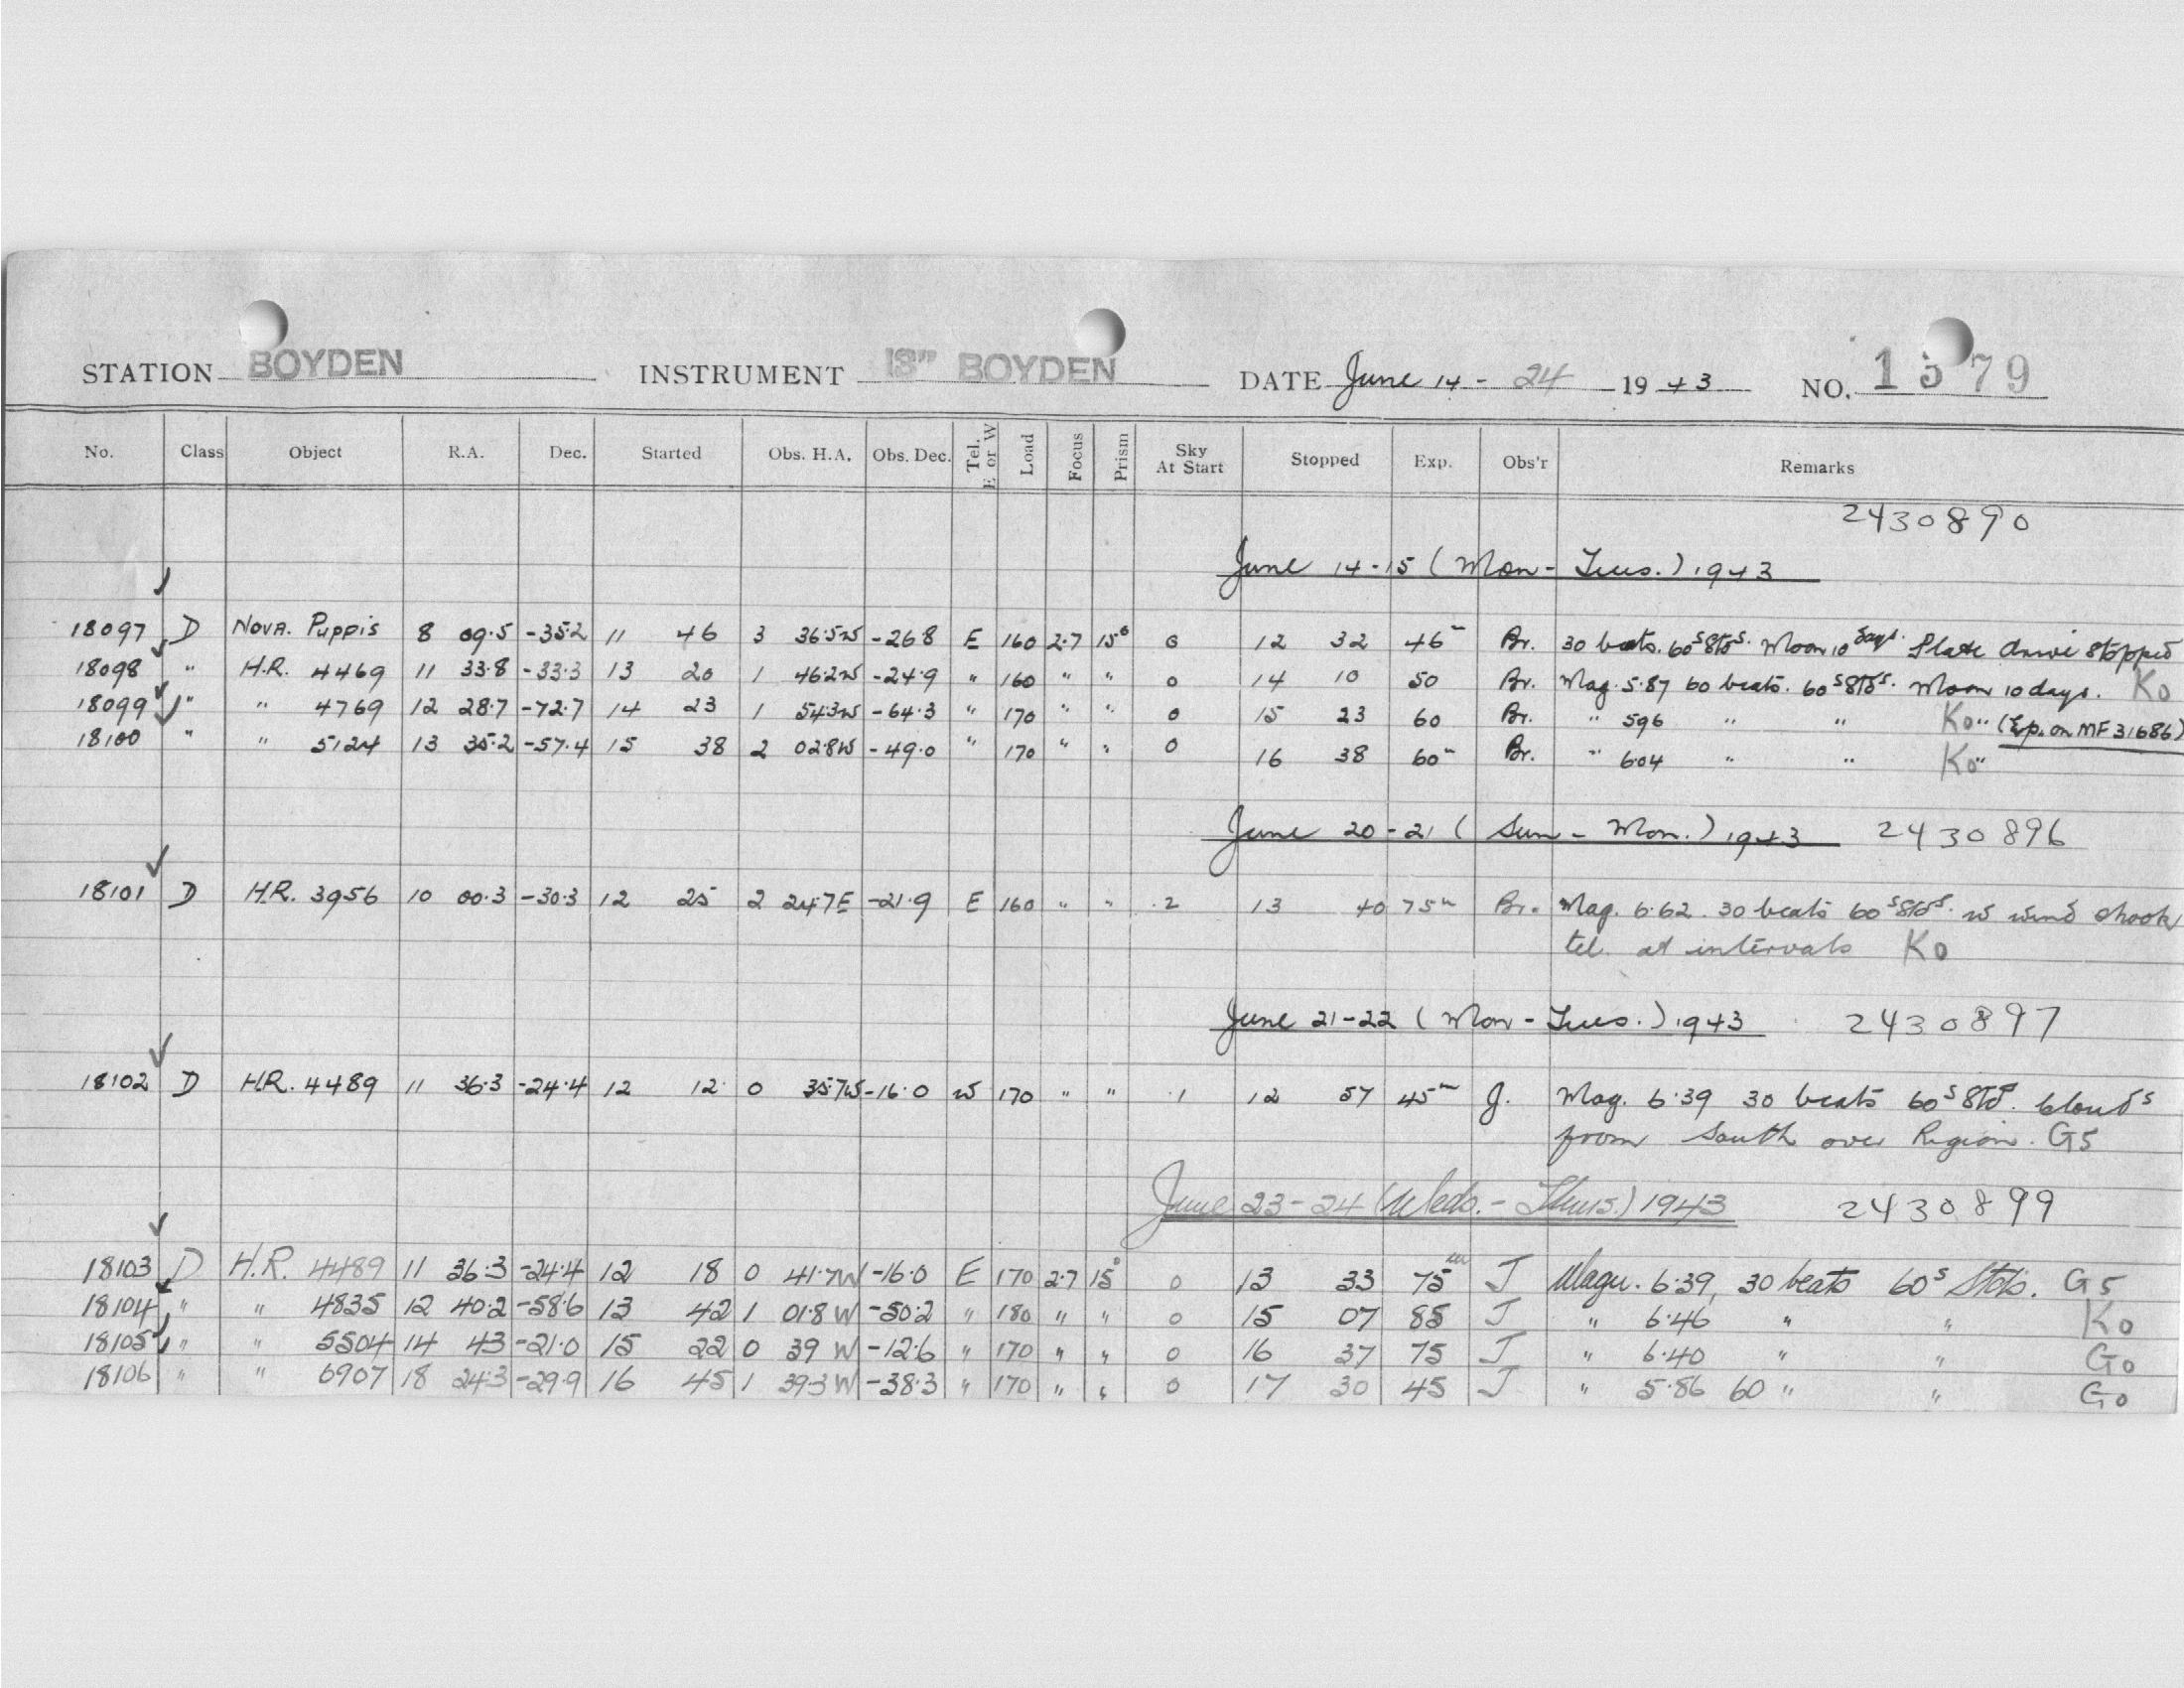 STATION BOYDEN INSTRUMENT 13" BOYDEN DATE June 14 - 24 1943 NO. 1579
No. Class Object R.A. Dec. Started Obs. H.A. Obs. Dec. Tel. E or W Load Focus Prism Sky At Start Stopped Exp. Obs'r Remarks
2430890
June 14-15 (Mon - Tues.) 1943
18097 D Nova. Puppis 8 09.5 -35.2 11 46 3 36.5W -26.8 E 160 2.7 15° 0 12 32 46m Br. 30 beats. 60s Stds. Moon 10 days. Plate drive stopped
18098 " H.R. 4469 11 33.8 -33.3 13 20 1 46.2W -24.9 " 160 " " 0 14 10 50 Br. Mag. 5.87 60 beats. 60s Stds. Moon 10 days. K0
18099 " " 4769 12 28.7 -72.7 14 23 1 54.3W -64.3 " 170 " " 0 15 23 60 Br. " 5.96 " " K0 " (Exp. on MF 31686)
18100 " " 5124 13 35.2 -57.4 15 38 2 02.8W -49.0 " 170 " " 0 16 38 60m Br. " 6.04 " " K0 "
June 20-21 (Sun - Mon.) 1943 2430896
18101 D H.R. 3956 10 00.3 -30.3 12 25 2 24.7E -21.9 E 160 " " .2 13 40 75m Br. Mag. 6.62. 30 beats 60s Stds. W wind shook
tel. at intervals K0
June 21-22 (Mon - Tues.) 1943 2430897
18102 D H.R. 4489 11 36.3 -24.4 12 12 0 35.7W -16.0 W 170 " " .1 12 57 45m J. Mag. 6.39 30 beats 60s Std. Clouds
from South over Region. G5
June 23-24 (Weds. - Thurs.) 1943 2430899
18103 D H.R. 4489 11 36.3 -24.4 12 18 0 41.7W -16.0 E 170 2.7 15° 0 13 33 75m J Magn. 6.39, 30 beats 60s Stds. G5
18104 " " 4835 12 40.2 -58.6 13 42 1 01.8W -50.2 " 180 " " 0 15 07 85 J " 6.46 " " K0
18105 " " 5504 14 43 -21.0 15 22 0 39 W -12.6 " 170 " " 0 16 37 75 J " 6.40 " " G0
18106 " " 6907 18 24.3 -29.9 16 45 1 39.3W -38.3 " 170 " " 0 17 30 45 J " 5.86 60 " " G0